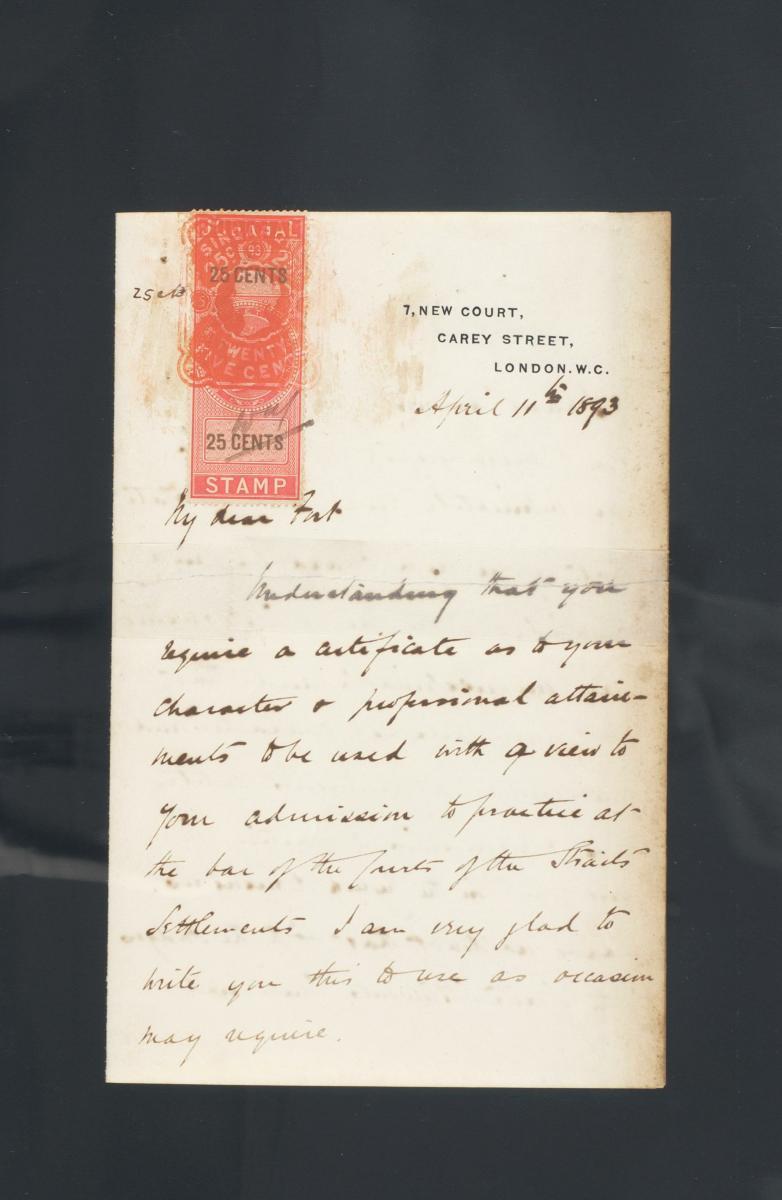 JUDICIAL
SINGAPORE
25 C
93
25 CENTS
TWENTY
FIVE CEN
25 CENTS
STAMP
25 cts
7, NEW COURT,
CAREY STREET,
LONDON. W.C.
April 11th 1893
My dear Fort
Understanding that you
require a certificate as to your
character & professional attain-
ments to be used with a view to
your admission to practice at
the bar of the Courts of the Straits
Settlements I am very glad to
write you this to use as occasion
may require.